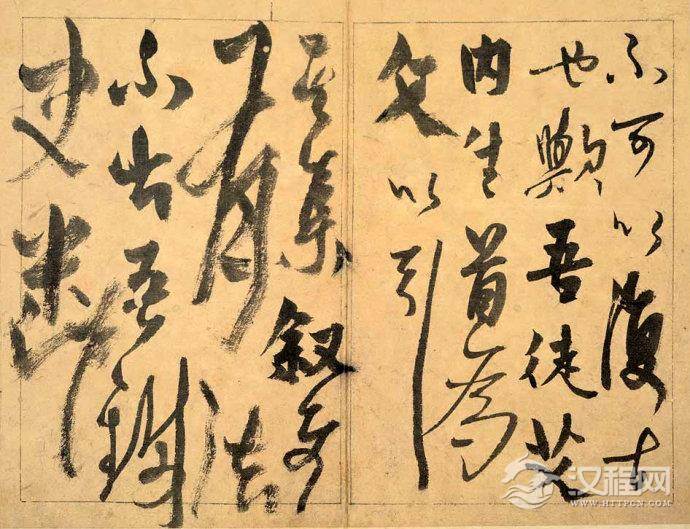 不可以復古
也歟吾徒艾
内生首為
文以引
其集叙
有法
不出吾
史米芾
汉程网
WWW.HTTPCN.COM